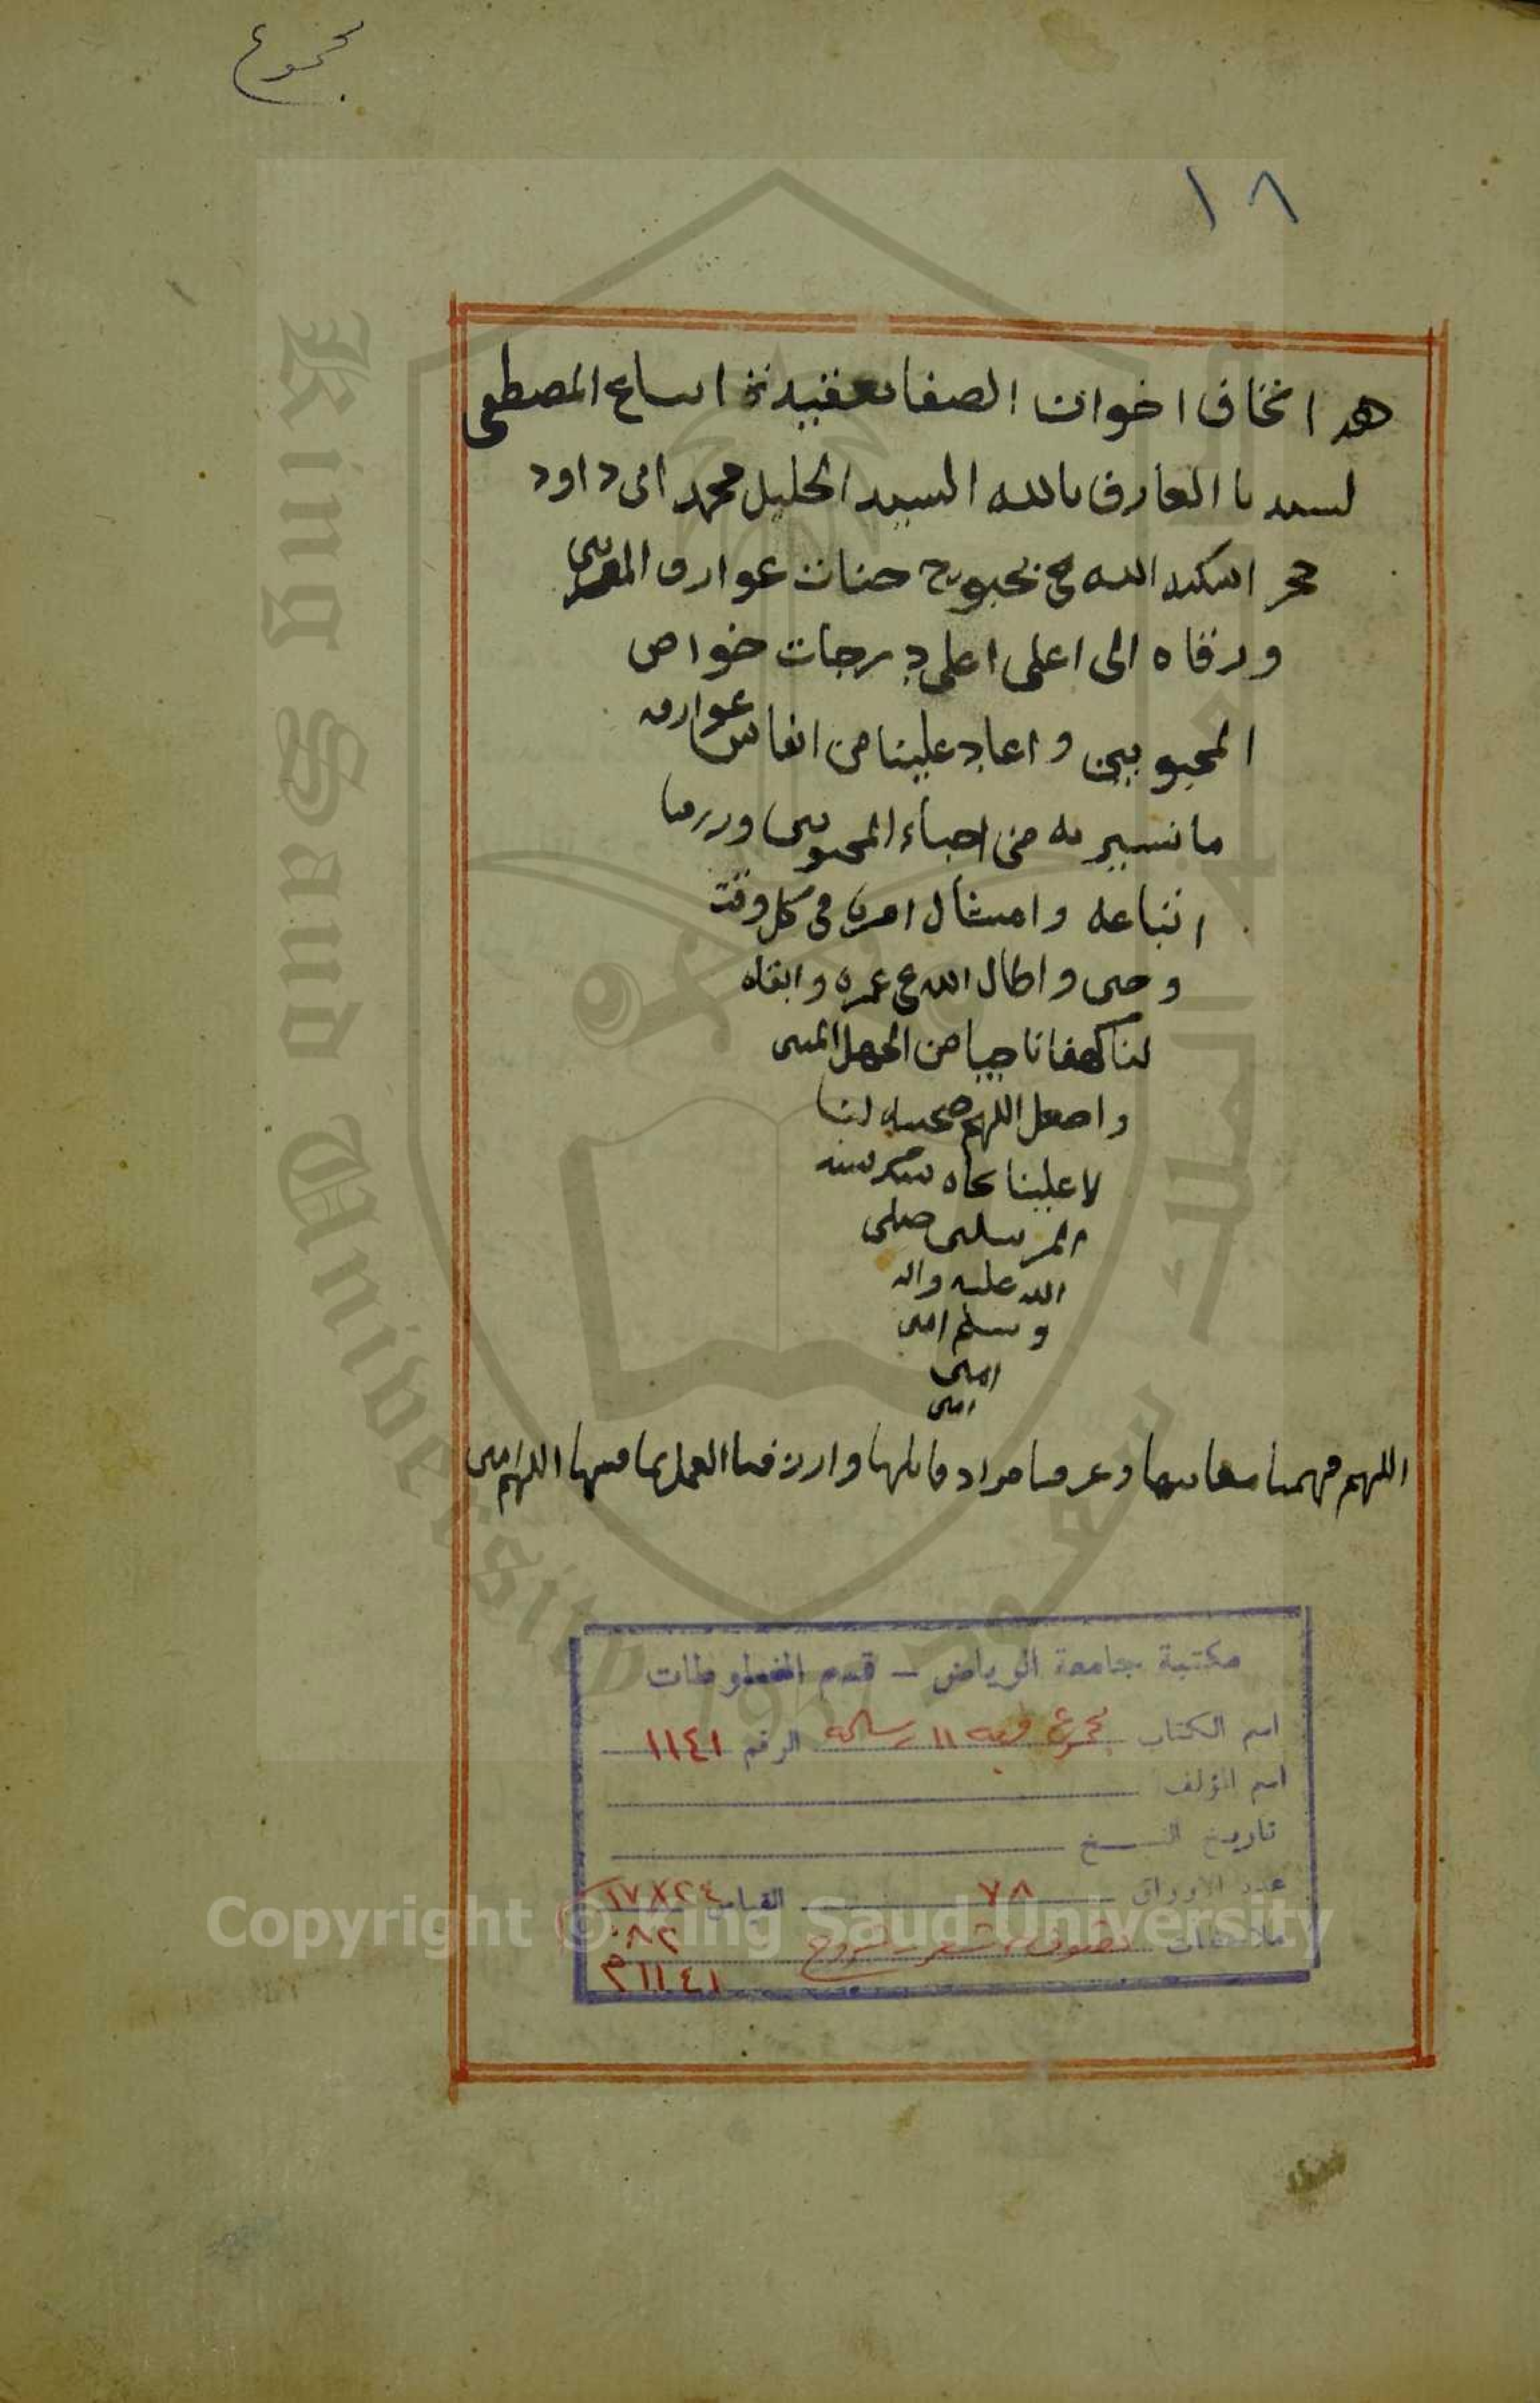 مجموع
١٨
هدا اتحاف اخوان الصفا بعقيدة اتباع المصطفى
لسيدنا العارف بالله السيد الجليل محمد ابى داود
حجر اسكنه الله بحبوح جنات عوارف المقربين
ورقاه الى اعلى اعلى درجات خواص
المحبوبين واعاد علينا من انفاس عوارفه
ما نسير به من احباء المحبوبين ورزقنا
اتباعه وامتثال امره فى كل وقت
وحين واطال الله عمره وابقاه
لنا كهفا ناجيا من الجهل المبين
واجعل اللهم صحبته لنا
لا علينا بجاه سيد
المرسلين صلى
الله عليه واله
وسلم امين
امين
امين
اللهم فهمنا معانيها وعرفنا مراد قائلها وارزقنا العمل بما فيها اللهم امين
مكتبة جامعة الرياض - قسم المخطوطات
اسم الكتاب مجموع وبه ١١ رسالة الرقم ١١٤١
اسم المؤلف
تاريخ النسخ
عدد الاوراق ٧٨ القياس ١٧X٢٤
ملاحظات تصوف - شعر - شروح ٠٨٢
١١٤١م
King Saud University
جامعة الملك سعود
1957
Copyright © King Saud University